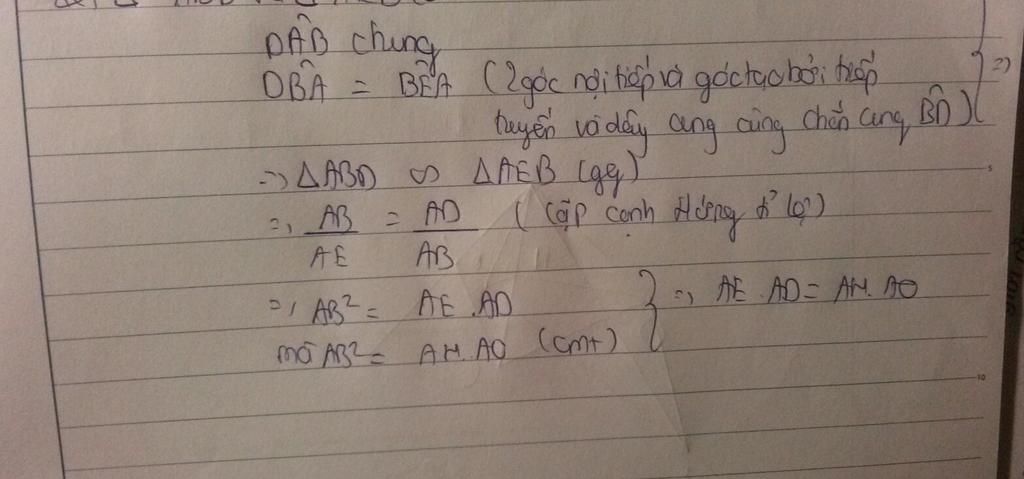 DÂB chung
DB̂A = BÊA (2 góc nội tiếp và góc tạo bởi tiếp
tuyến và dây cung cùng chắn cung BD) } =>
=> ΔABD ∽ ΔAEB (gg)
=> AB/AE = AD/AB (cặp cạnh tương ứ tỉ lệ)
=> AB² = AE.AD } => AE.AD = AH.AO
mà AB² = AH.AO (cmt)